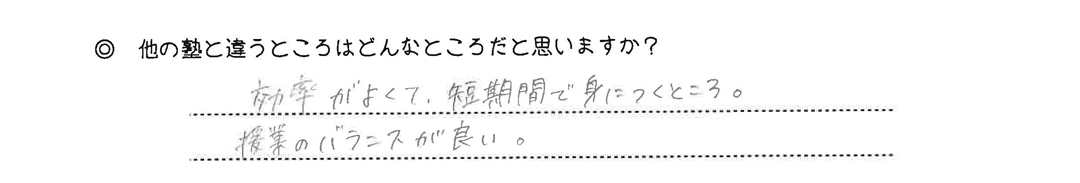 ◎ 他の塾と違うところはどんなところだと思いますか？
効率がよくて、短期間で身につくところ。
授業のバランスが良い。